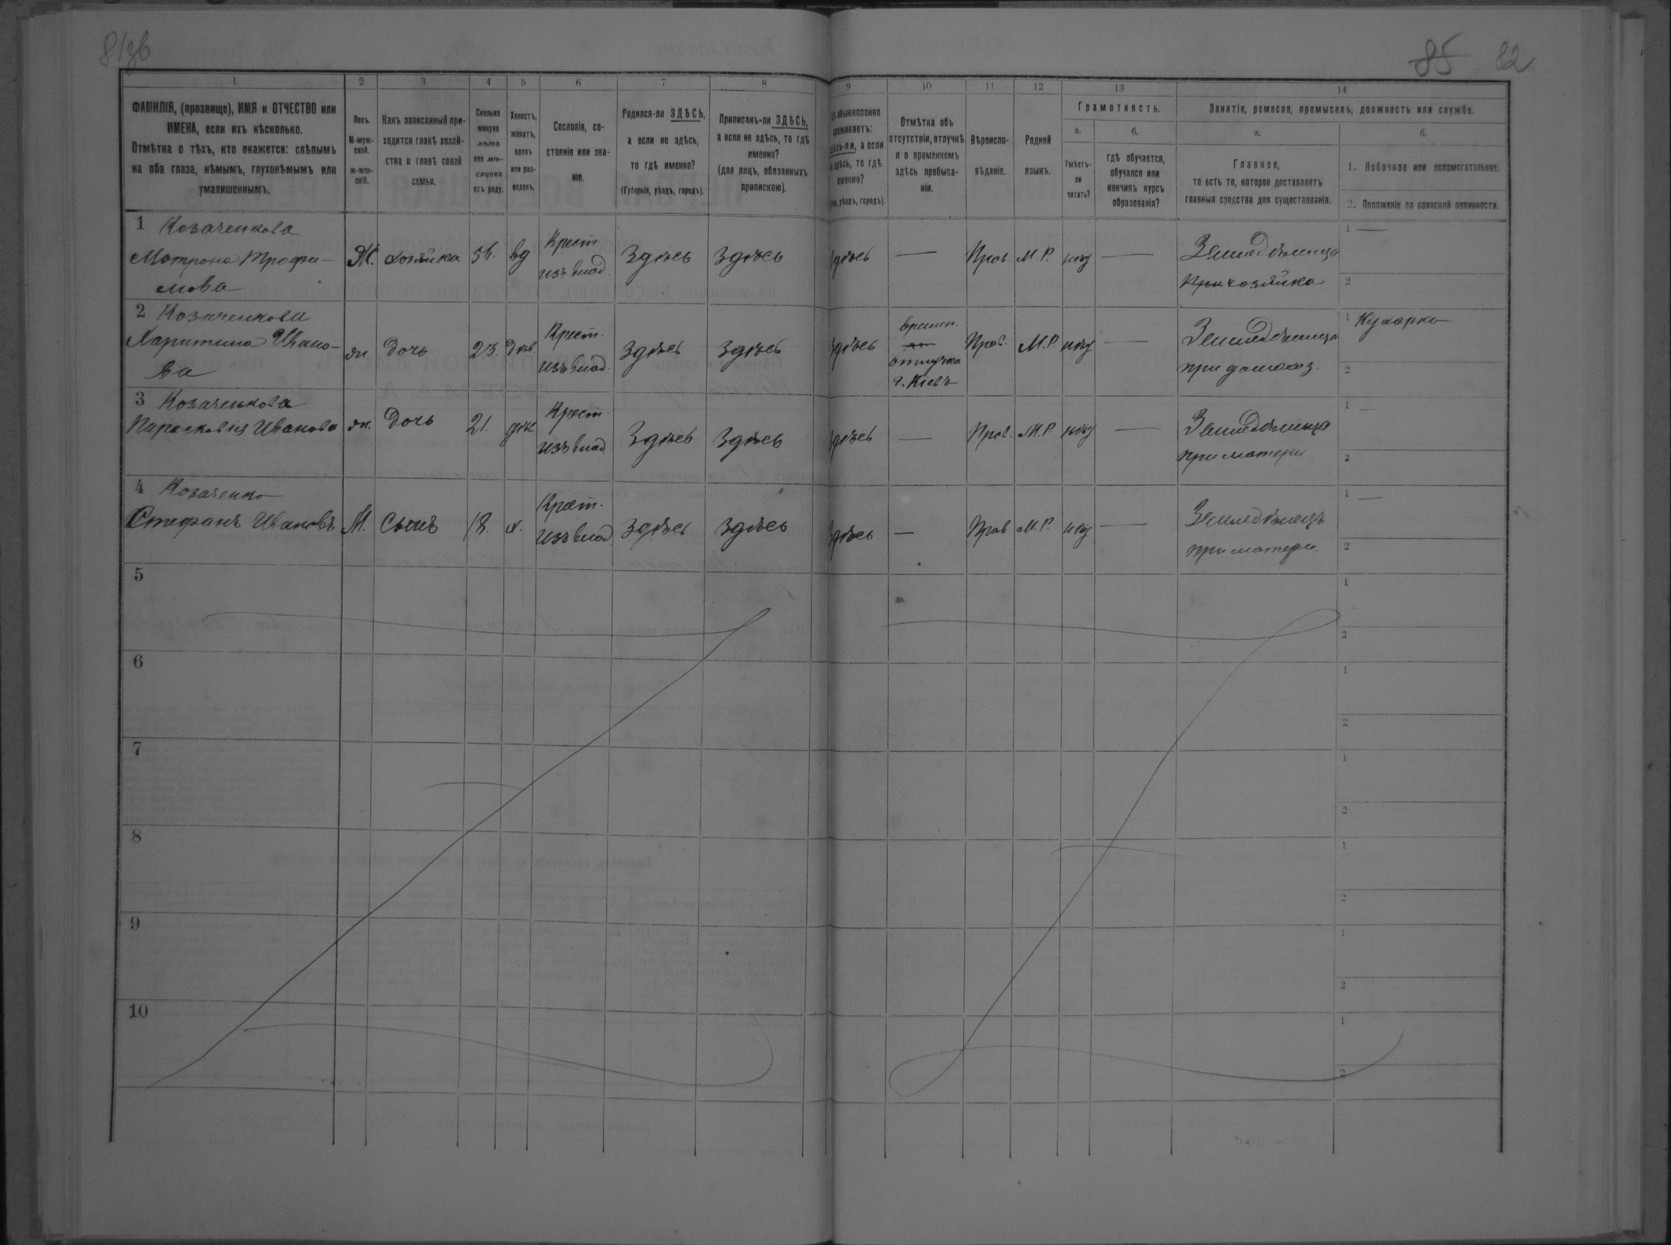 85 82
1 2 3 4 5 6 7 8 9 10 11 12 13 14
ФАМИЛІЯ, (прозвище), ИМЯ и ОТЧЕСТВО или
ИМЕНА, если ихъ нѣсколько.
Отмѣтка о тѣхъ, кто окажется: слѣпымъ
на оба глаза, нѣмымъ, глухонѣмымъ или
умалишеннымъ.
Полъ.
М-муж-
ской.
ж-жен-
скій.
Какъ записанный при-
ходится главѣ хозяй-
ства и главѣ своей
семьи.
Сколько
минуло
лѣтъ
или мѣ-
сяцевъ
отъ роду.
Холостъ,
женатъ,
вдовъ
или раз-
веденъ.
Сословіе, со-
стояніе или зва-
ніе.
Родился-ли ЗДѢСЬ,
а если не здѣсь,
то гдѣ именно?
(Губернія, уѣздъ, городъ).
Приписанъ-ли ЗДѢСЬ,
а если не здѣсь, то гдѣ
именно?
(для лицъ, обязанныхъ
припискою).
обыкновенно
проживаетъ:
а если
здѣсь, то гдѣ
именно?
уѣздъ, городъ).
Отмѣтка объ
отсутствіи, отлучкѣ
и о временномъ
здѣсь пребыва-
ніи.
Вѣроиспо-
вѣданіе.
Родной
языкъ.
Грамотность.
а.
Умѣетъ-
ли
читать?
б.
гдѣ обучается,
обучался или
кончилъ курсъ
образованія?
Занятіе, ремесло, промыселъ, должность или служба.
а.
Главное,
то есть то, которое доставляетъ
главныя средства для существованія.
б.
1. Побочное или вспомогательное.
2. Положеніе по воинской повинности.
1 Козаченкова
Матрона Трофи-
мова
Ж. хозяйка 56. вд
Крест.
изъ влад.
Здѣсь Здѣсь Здѣсь — Прав М.Р. нѣт —
Земледѣлица
хозяйка
1 —
2
2 Козаченкова
Харитина Ивано-
ва
ж. Дочь 23. дѣв.
Крест.
изъ влад.
Здѣсь Здѣсь Здѣсь
времен.
отлучка
г. Кіевъ
Прав. М.Р нѣт —
Земледѣлица
при
1 Кухарка
2
3 Козаченкова
Парасковія Иванова
ж. Дочь 21. дѣв.
Крест.
изъ влад
Здѣсь Здѣсь Здѣсь — Прав. М.Р нѣт —
Земледѣлица
при матери
1 —
2
4 Козаченко
Стефанъ Ивановъ
М. Сынъ 18. х.
Крест.
изъ влад
Здѣсь Здѣсь Здѣсь — Прав М.Р. нѣт —
Земледѣлецъ
при матери.
1 —
2
5 1
2
6 1
2
7 1
2
8 1
2
9 1
2
10 1
2